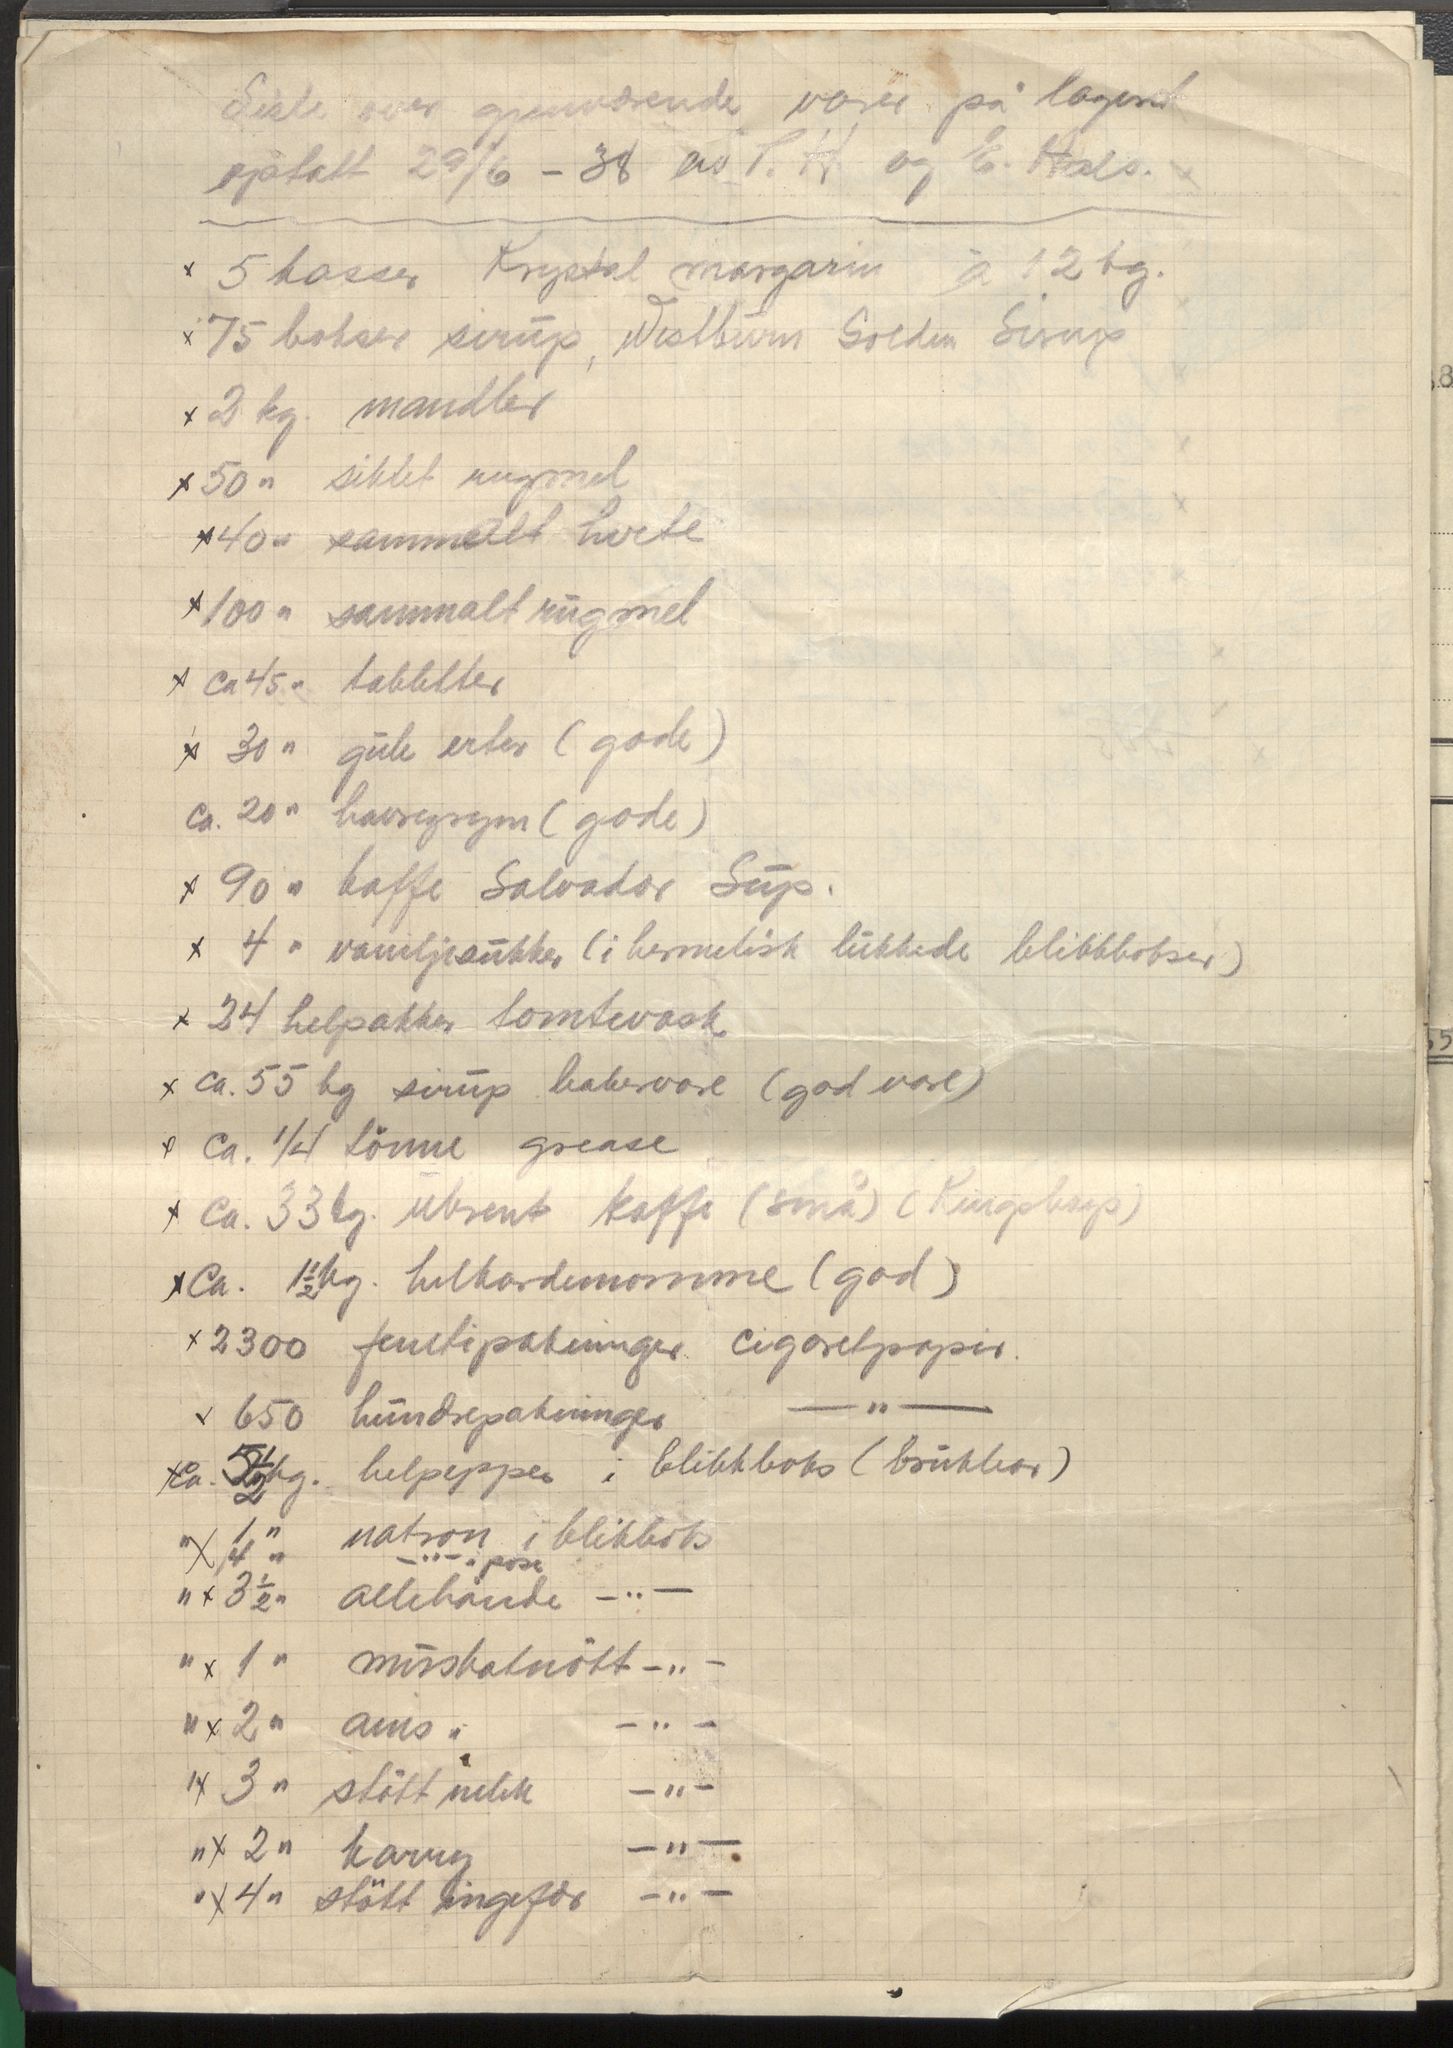 Liste over gjenværende varer på lageret
optatt 29/6 - 38 av P. H og E. Hals.
x 5 kasser Krystal margarin à 12 kg.
x 75 bokser sirup, Westburn Golden Sirup
x 2 kg. mandler
x 50 " siktet rugmel
x 40 " sammalt hvete
x 100 " sammalt rugmel
x ca 45 " tabletter
x 30 " gule erter (gode)
ca. 20 " havregryn (gode)
x 90 " kaffe Salvador Sup.
x 4 " vaniljesukker (i hermetisk lukkede blikkbokser)
x 24 helpakker tomtevask
x ca. 55 kg sirup bakervare (god vare)
x ca. 1/4 tönne grease
x ca. 33 kg. ubrent kaffe (små) (Kingsbays)
x Ca. 1 1/2 kg. helkardemomme (god)
x 2300 femtipakninger cigaretpapir.
x 650 hundrepakninger — " —
x ca. 5 1/2 kg. helpepper i blikkboks (brukbar)
" x 1 " natron i blikkboks
1/4 " - " - i pose
" x 3 1/2 " allehånde - " -
" x 1 " muskatnött - " -
" x 2 " anis - " -
" x 3 " stött nelik - " -
" x 2 " karry - " -
" x 4 " stött ingefær - " -